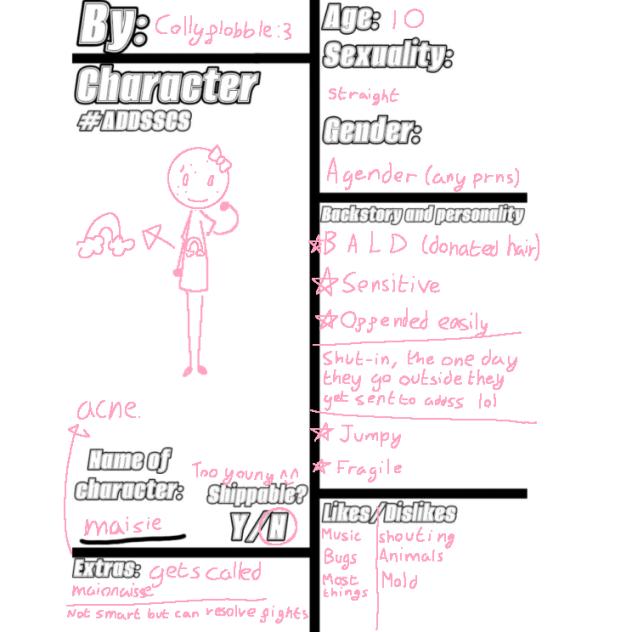 By: Collyflobble:3
Character
#ADDSSCS
acne.
Name of
character:
maisie
Too young ^^
Shippable?
Y/N
Extras: gets called
maionaise
Not smart but can resolve fights
Age: 10
Sexuality:
straight
Gender:
Agender (any prns)
Backstory and personality
BALD (donated hair)
Sensitive
Offended easily
Shut-in, the one day
they go outside they
get sent to addss lol
Jumpy
Fragile
Likes/Dislikes
Music
Bugs
Most
things
shouting
Animals
Mold